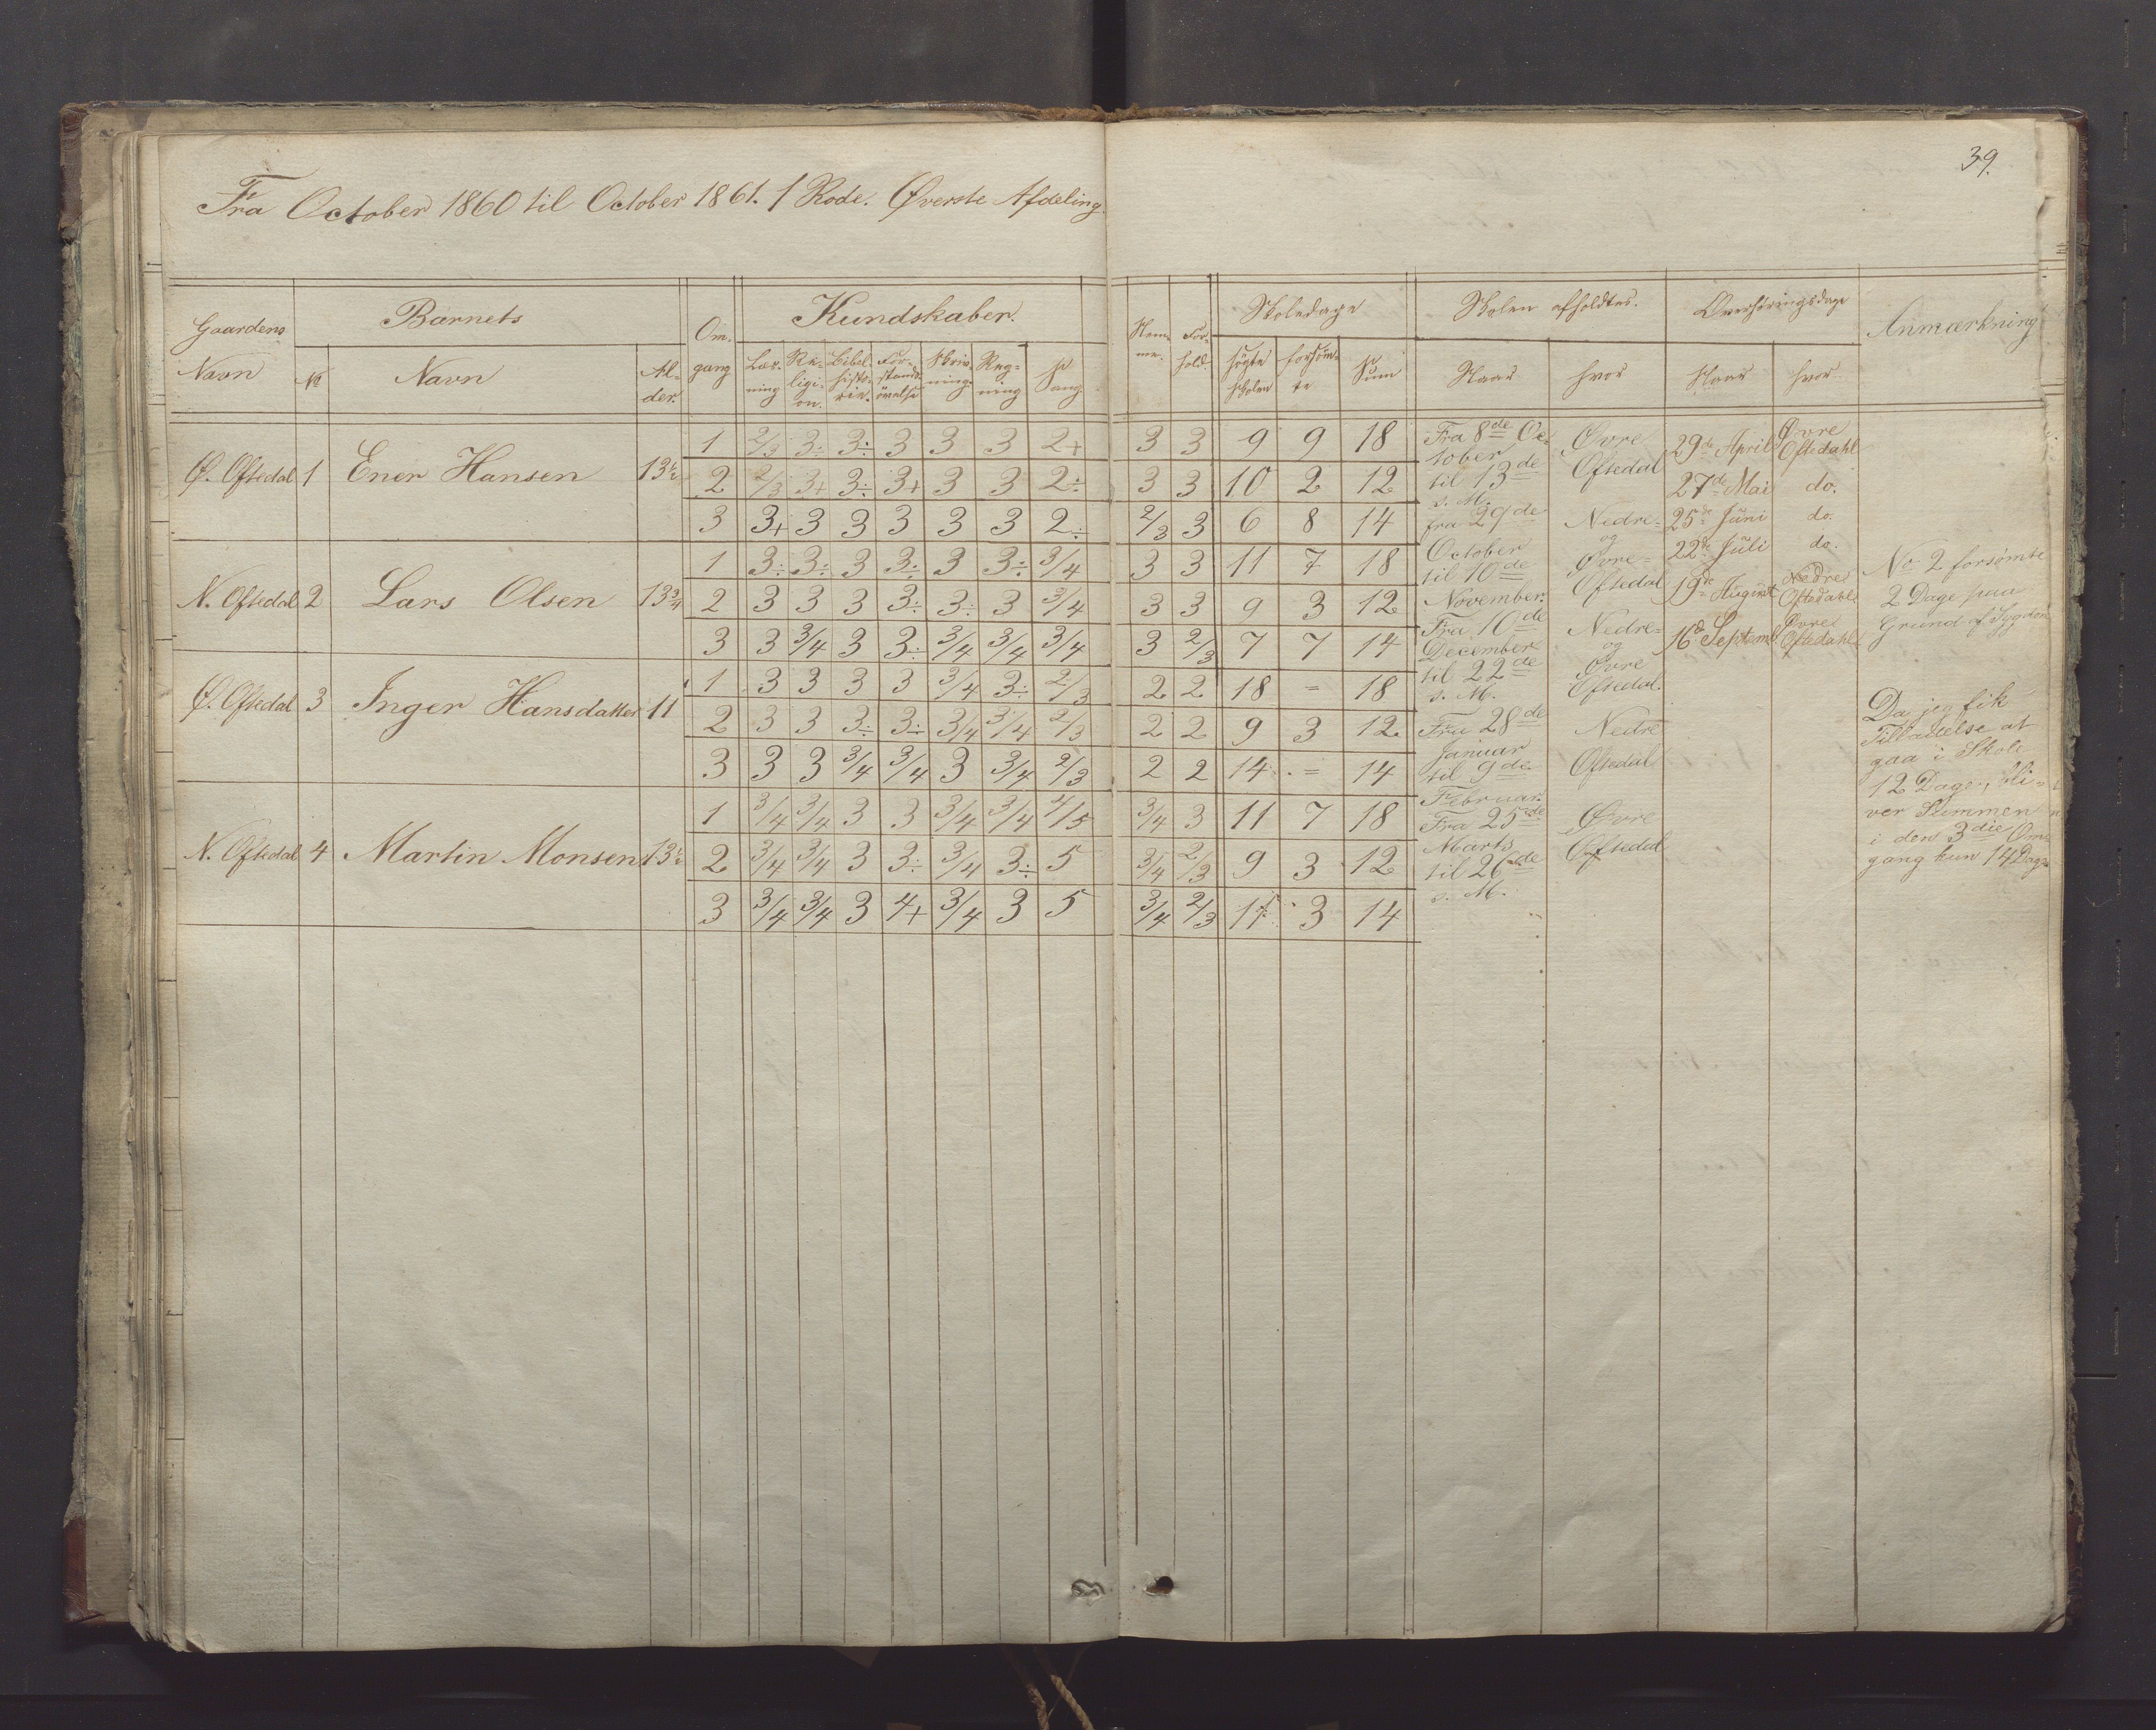 39.
Fra October 1860 til October 1861. 1 Rode. Øverste Afdeling.
Gaardens Navn | Barnets | Om- gang | Kundskaber. | Nem- me. | For- hold. | Skoledage | Skolen afholdtes. | Overhøringsdage | Anmærkning
№ | Navn | Al- der. | Læs- ning | Re- ligi- on. | Bibel- histo- rie. | For- stands- øvelse | Skriv- ning | Reg- ning | Sang. | søgte Skolen | forsøm- te | Sum | Naar | hvor | Naar | hvor.
Ø. Oftedal 1 Ener Hansen 13½ 1 2/3 3÷ 3÷ 3 3 3 2+ 3 3 9 9 18
2 2/3 3+ 3÷ 3+ 3 3 2÷ 3 3 10 2 12
3 3+ 3 3 3 3 3 2÷ 2/3 3 6 8 14
N. Oftedal 2 Lars Olsen 13¾ 1 3÷ 3÷ 3 3÷ 3 3÷ 3/4 3 3 11 7 18
2 3 3 3 3÷ 3÷ 3 3/4 3 3 9 3 12
3 3 3/4 3 3÷ 3/4 3/4 3/4 3 2/3 7 7 14
Ø. Oftedal 3 Inger Hansdatter 11 1 3 3 3 3 3/4 3÷ 2/3 2 2 18 = 18
2 3 3 3÷ 3÷ 3/4 3/4 2/3 2 2 9 3 12
3 3 3 3/4 3/4 3 3/4 2/3 2 2 14 = 14
N. Oftedal 4 Martin Monsen 13½ 1 3/4 3/4 3 3 3/4 3/4 4/5 3/4 3 11 7 18
2 3/4 3/4 3 3÷ 3/4 3÷ 5 3/4 2/3 9 3 12
3 3/4 3/4 3 4+ 3/4 3 5 3/4 2/3 11 3 14
Fra 8de Oc-
tober
til 13de
s. M.
fra 29de
October
til 10de
November.
Fra 10de
December
til 22de
s. M.
Fra 28de
Januar
til 9de
Februar.
Fra 25de
Marts
til 26de
s. M.
Øvre
Oftedal
Nedre=
og
Øvre=
Oftedal
Nedre=
og
Øvre
Oftedal.
Nedre
Oftedal
Øvre
Oftedal
29de April Øvre Oftedahl
27de Mai do.
25de Juni do.
22de Juli do.
19de August Nedre Oftedahl
16de Septemb Øvre Oftedahl
No 2 forsømte
2 Dage paa
Grund af Sygdom
Da jeg fik
Tilladelse at
gaa i Skole
12 Dage, bli=
ver Summen
i den 3die Om=
gang kun 14 Dage